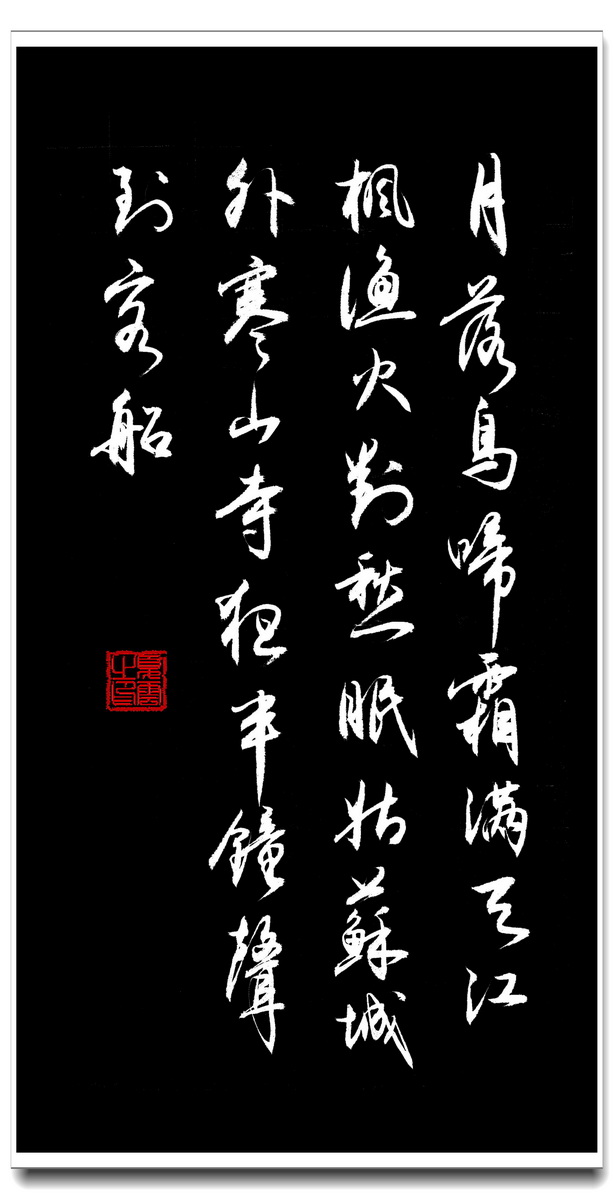 月落鳥啼霜滿天江
楓漁火對愁眠姑蘇城
外寒山寺半鐘聲
到客船